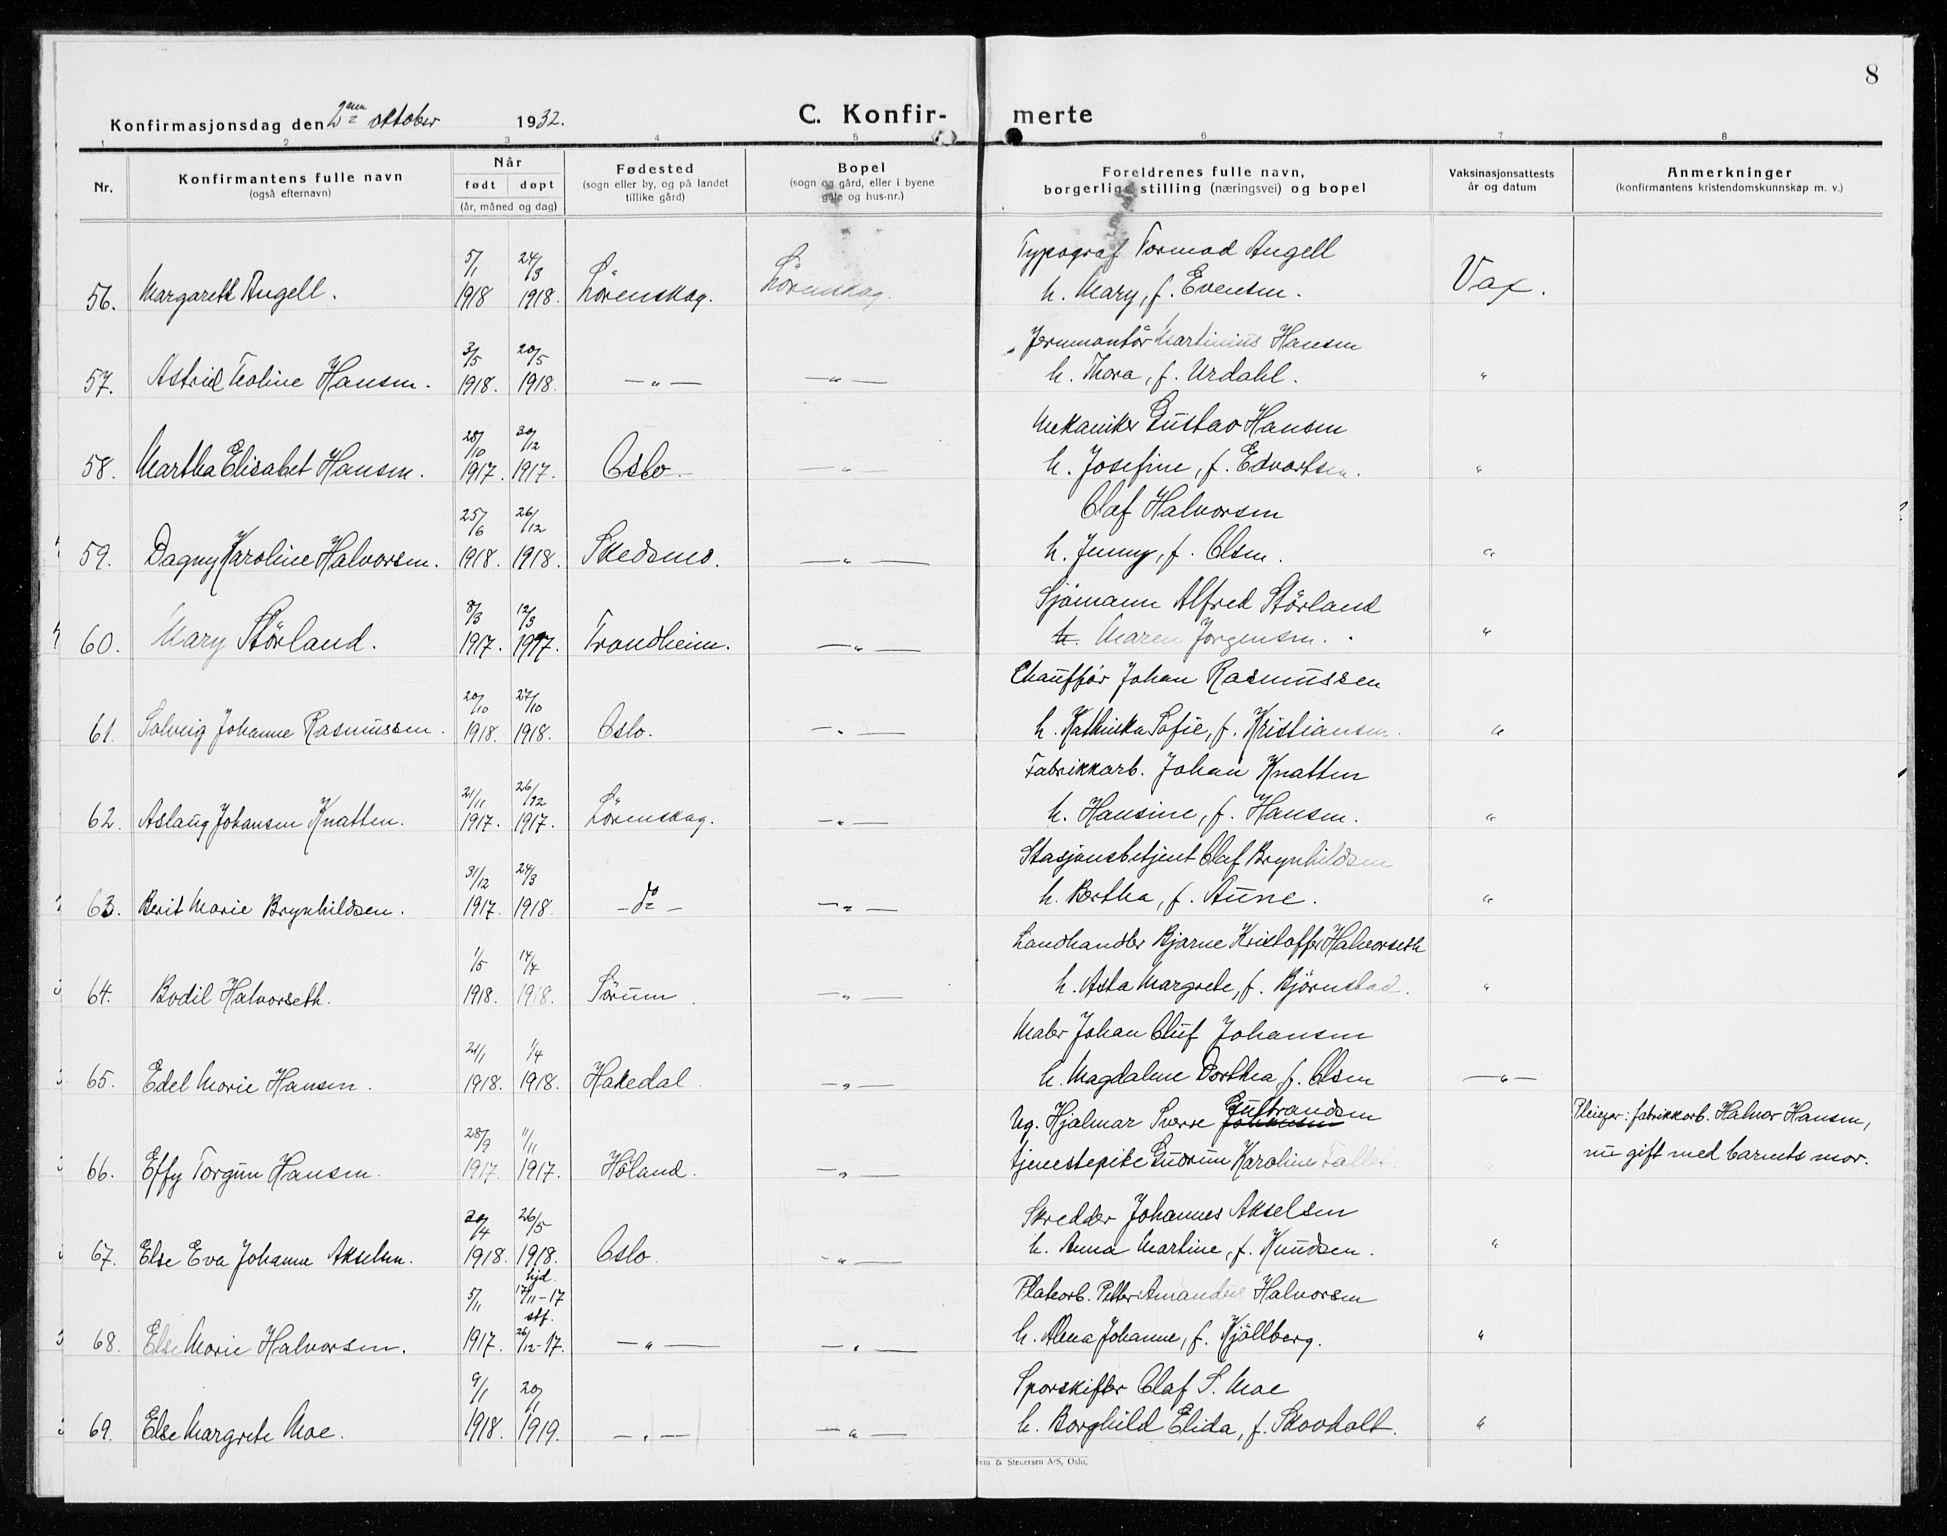 8
Konfirmasjonsdag den 2den oktober 1932. C. Konfir- merte
1 2 3 4 5 6 7 8
Nr. Konfirmantens fulle navn (også efternavn) Når født døpt (år, måned og dag) Fødested (sogn eller by, og på landet tillike gård) Bopel (sogn og gård, eller i byene gate og hus-nr.) Foreldrenes fulle navn, borgerlige stilling (næringsvei) og bopel Vaksinasjonsattests år og datum Anmerkninger (konfirmantens kristendomskunnskap m. v.)
5/1 24/3 Typograf Tormod Angell
56. Margareth Angell. 1918 1918. Lörenskog. Lörenskog. h. Mary, f. Evensen. Vax.
3/5 20/5 Jernmontör Martinius Hansen
57. Astrid Teoline Hansen. 1918. 1918. —"— —"— h. Thora, f. Urdahl. "
28/10 30/12 Mekaniker Gustav Hansen
58. Martha Elisabet Hansen. 1917. 1917. Oslo. —"— h. Josefine, f. Edvartsen. "
25/6 26/12 Olaf Halvorsen
59. Dagny Karoline Halvorsen. 1918. 1918. Skedsmo. —"— h. Jenny, f. Olsen. "
8/3 12/3 Sjömann Alfred Störland
60. Mary Störland. 1917. 1917. Trondheim. —"— h. Maren Jorgensen. "
20/10 27/10 Chauffør Johan Rasmussen
61. Solveig Johanne Rasmussen. 1918. 1918. Oslo. —"— h. Kathinka Sofie, f. Kristiansen. "
21/11 26/12 Fabrikkarb. Johan Knatten
62. Aslaug Johansen Knatten. 1917. 1917. Lörenskog. —"— h. Hansine, f. Hansen. "
31/12 24/3 Stasjonsbetjent Olaf Brynhildsen
63. Berit Marie Brynhildsen. 1917. 1918. —do— —"— h. Bertha, f. Aune. "
1/5 14/7 Landhandler Bjarne Kristoffer Halvorseth
64. Bodil Halvorseth. 1918. 1918. Sörum. —"— h. Asta Margrete, f. Björnstad. "
21/1 1/4 Maler Johan Oluf Johansen
65. Edel Marie Hansen. 1918. 1918. Hakedal. —"— h. Magdalene Dorthea f. Olsen —"—
28/9 11/11 Ug. Hjalmar Sverre Johansen Gulbrandsen Pleiefar: fabrikkarb. Halvor Hansen,
66. Effy Torgun Hansen. 1917. 1917. Höland. —"— tjenestepike Gudrun Karoline " nu gift med barnets mor.
20/4 26/5 Skredder Johannes Akselsen
67. Else Eva Johanne Akselsen. 1918. 1918. Oslo. —"— h. Anna Martine, f. Knudsen. "
5/11 hjd. 17/11-17 Platearb. Petter Amandus Halvorsen
68. Else Marie Halvorsen. 1917. stf. 26/12-17. —"— —"— h. Alena Johanne, f. Kjöllberg. "
9/1 20/1 Sporskifter Olaf S. Moe
69. Else Margrete Moe. 1918. 1919. —"— —"— h. Borghild Elida, f. Skovholt. "
& Stenersen A/S, Oslo.